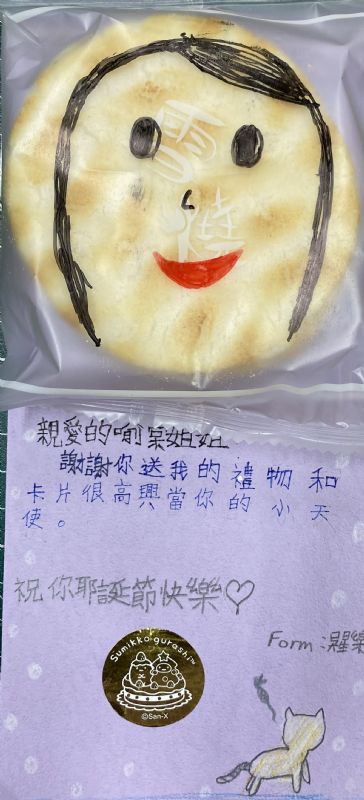 雪燒
親愛的喻棠姐姐
謝謝你送我的禮物和
卡片很高興當你的小天
使。
祝你耶誕節快樂♡
Form:
Sumikko gurashi™
©San-X